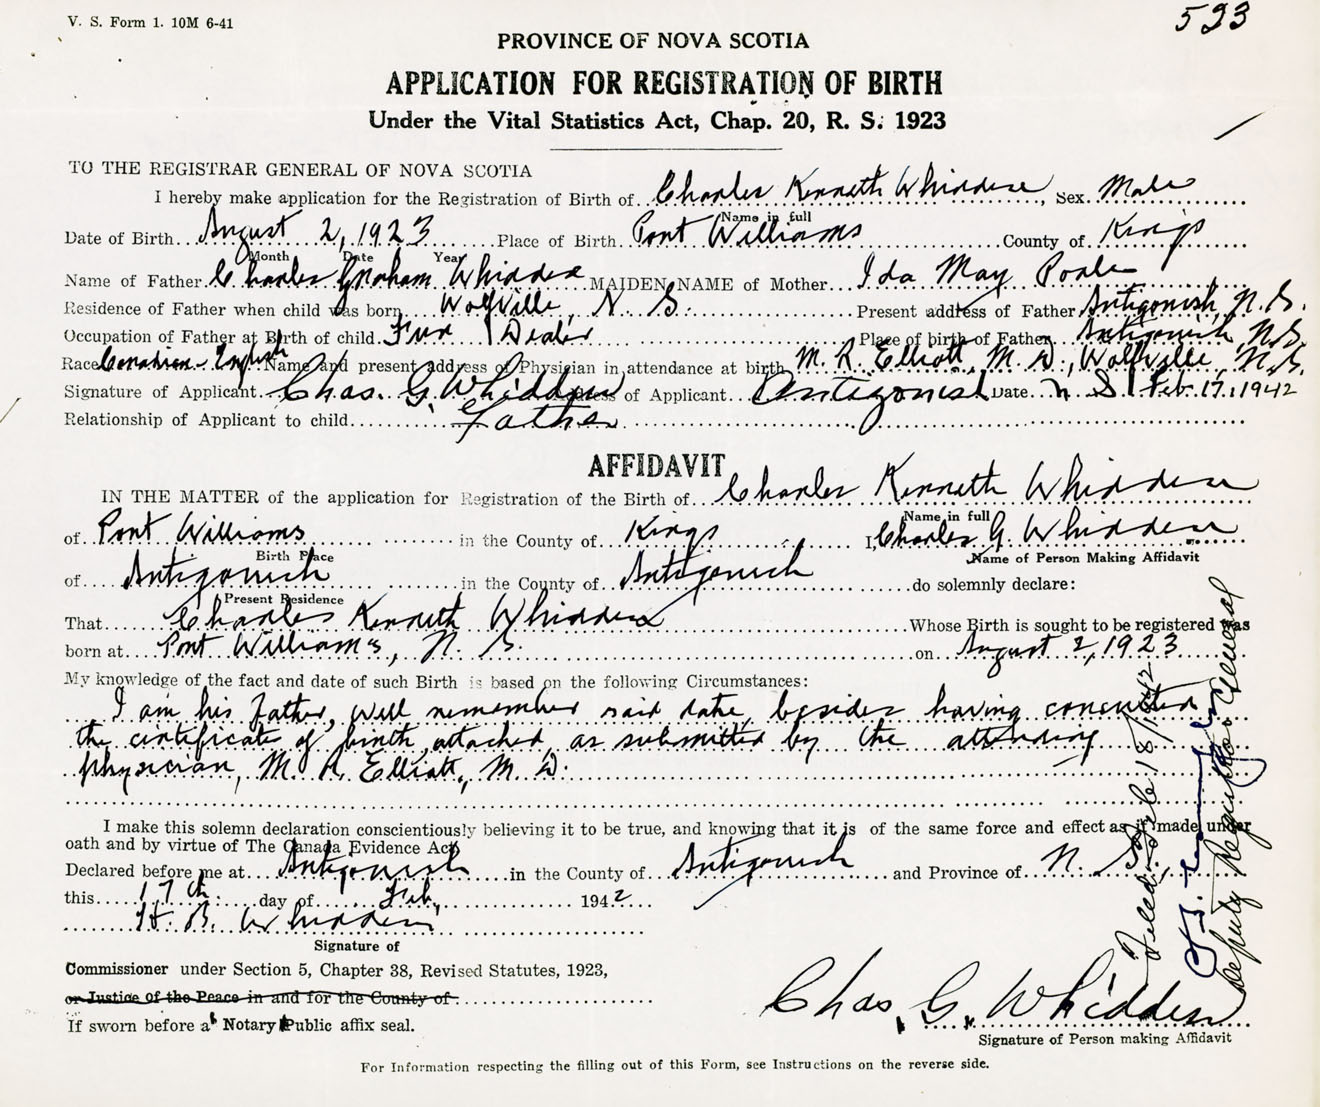 V. S. Form 1. 10M 6-41
523
PROVINCE OF NOVA SCOTIA
APPLICATION FOR REGISTRATION OF BIRTH
Under the Vital Statistics Act, Chap. 20, R. S. 1923
TO THE REGISTRAR GENERAL OF NOVA SCOTIA
I hereby make application for the Registration of Birth of Charles Kenneth Whidden, Sex Male
Name in full
Date of Birth August 2, 1923 Place of Birth Port Williams County of Kings
Month Date Year
Name of Father Charles Graham Whidden MAIDEN NAME of Mother Ida May
Residence of Father when child was born Wolfville, N. S. Present address of Father Antigonish, N. S.
Occupation of Father at Birth of child Fur Dealer Place of birth of Father Antigonish N.S.
Race Canadian-English Name and present address of Physician in attendance at birth M. R. Elliott, M. D., Wolfville, N.S.
Signature of Applicant Chas. G. Whidden Address of Applicant Antigonish Date N S Feb. 17, 1942
Relationship of Applicant to child Father
AFFIDAVIT
IN THE MATTER of the application for Registration of the Birth of Charles Kenneth Whidden
Name in full
of Port Williams in the County of Kings I, Charles G. Whidden
Birth Place Name of Person Making Affidavit
of Antigonish in the County of Antigonish do solemnly declare:
Present Residence
That Charles Kenneth Whidden Whose Birth is sought to be registered was
born at Port Williams, N. S. on August 2, 1923
My knowledge of the fact and date of such Birth is based on the following Circumstances:
I am his father, well remember said date, besides having
the certificate of birth attached, as submitted by the attending
physician, M. R. Elliott, M. D.
I make this solemn declaration conscientiously believing it to be true, and knowing that it is of the same force and effect as if made under
oath and by virtue of The Canada Evidence Act,
Declared before me at Antigonish in the County of Antigonish and Province of N. S.
this 17th day of Feb. 1942
H. B. Whidden
Signature of
Commissioner under Section 5, Chapter 38, Revised Statutes, 1923,
or Justice of the Peace in and for the County of
If sworn before a Notary Public affix seal.
Chas. G. Whidden
Signature of Person making Affidavit
For Information respecting the filling out of this Form, see Instructions on the reverse side.
Filed Feb 18/1942
Deputy Registrar General